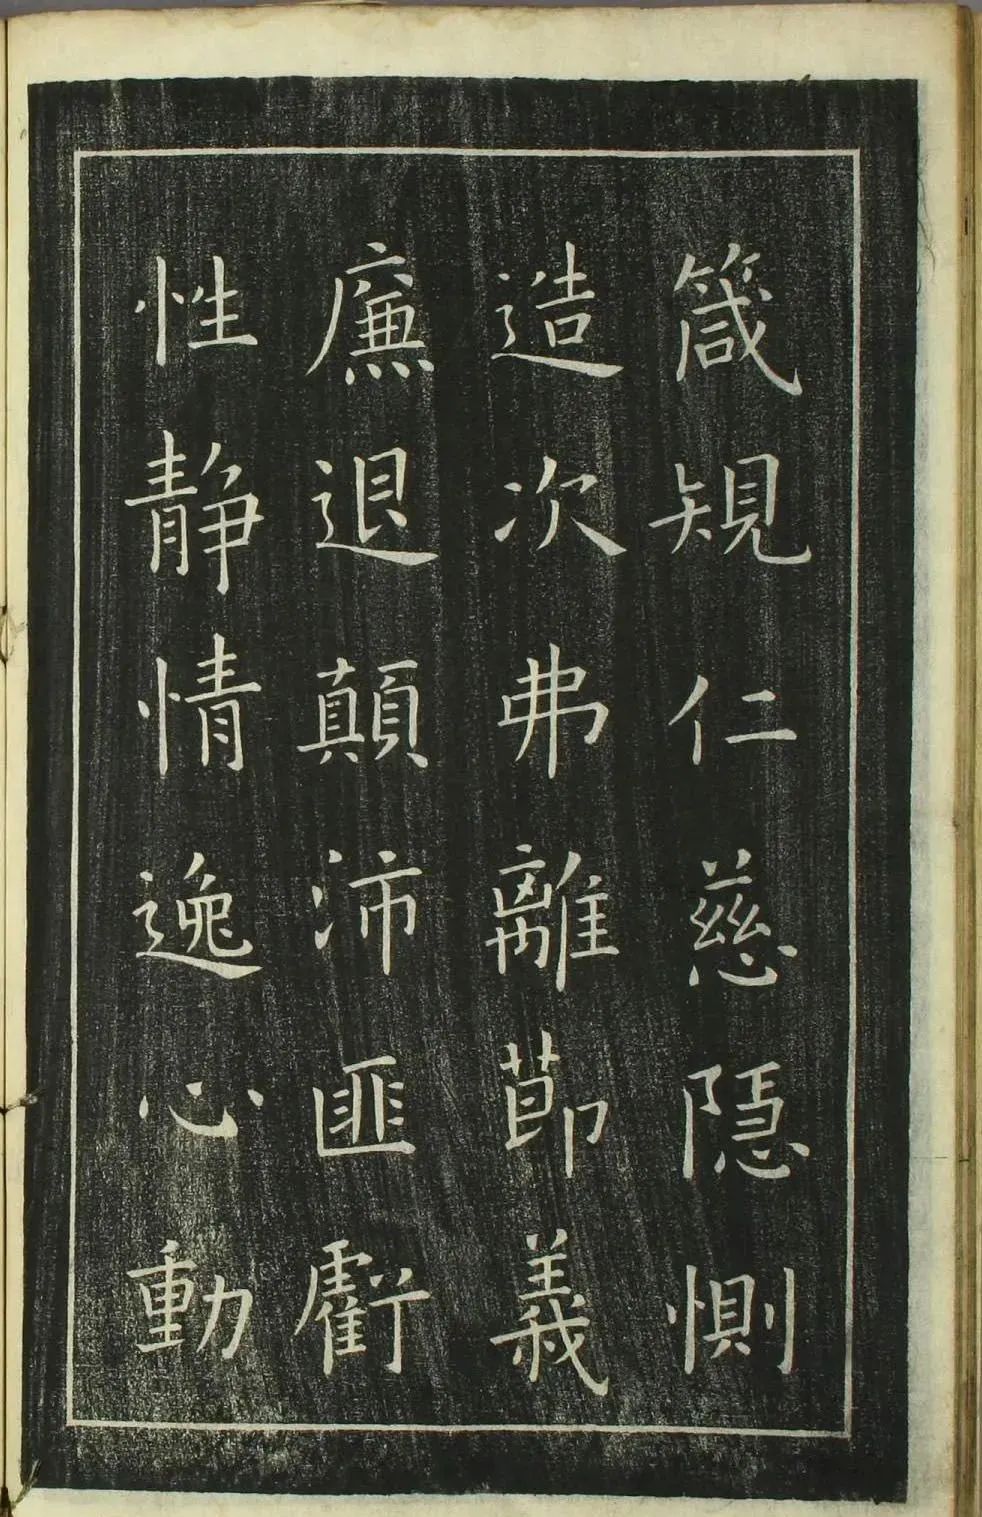 箴規仁慈隱惻
造次弗離節義
廉退顛沛匪虧
性靜情逸心動